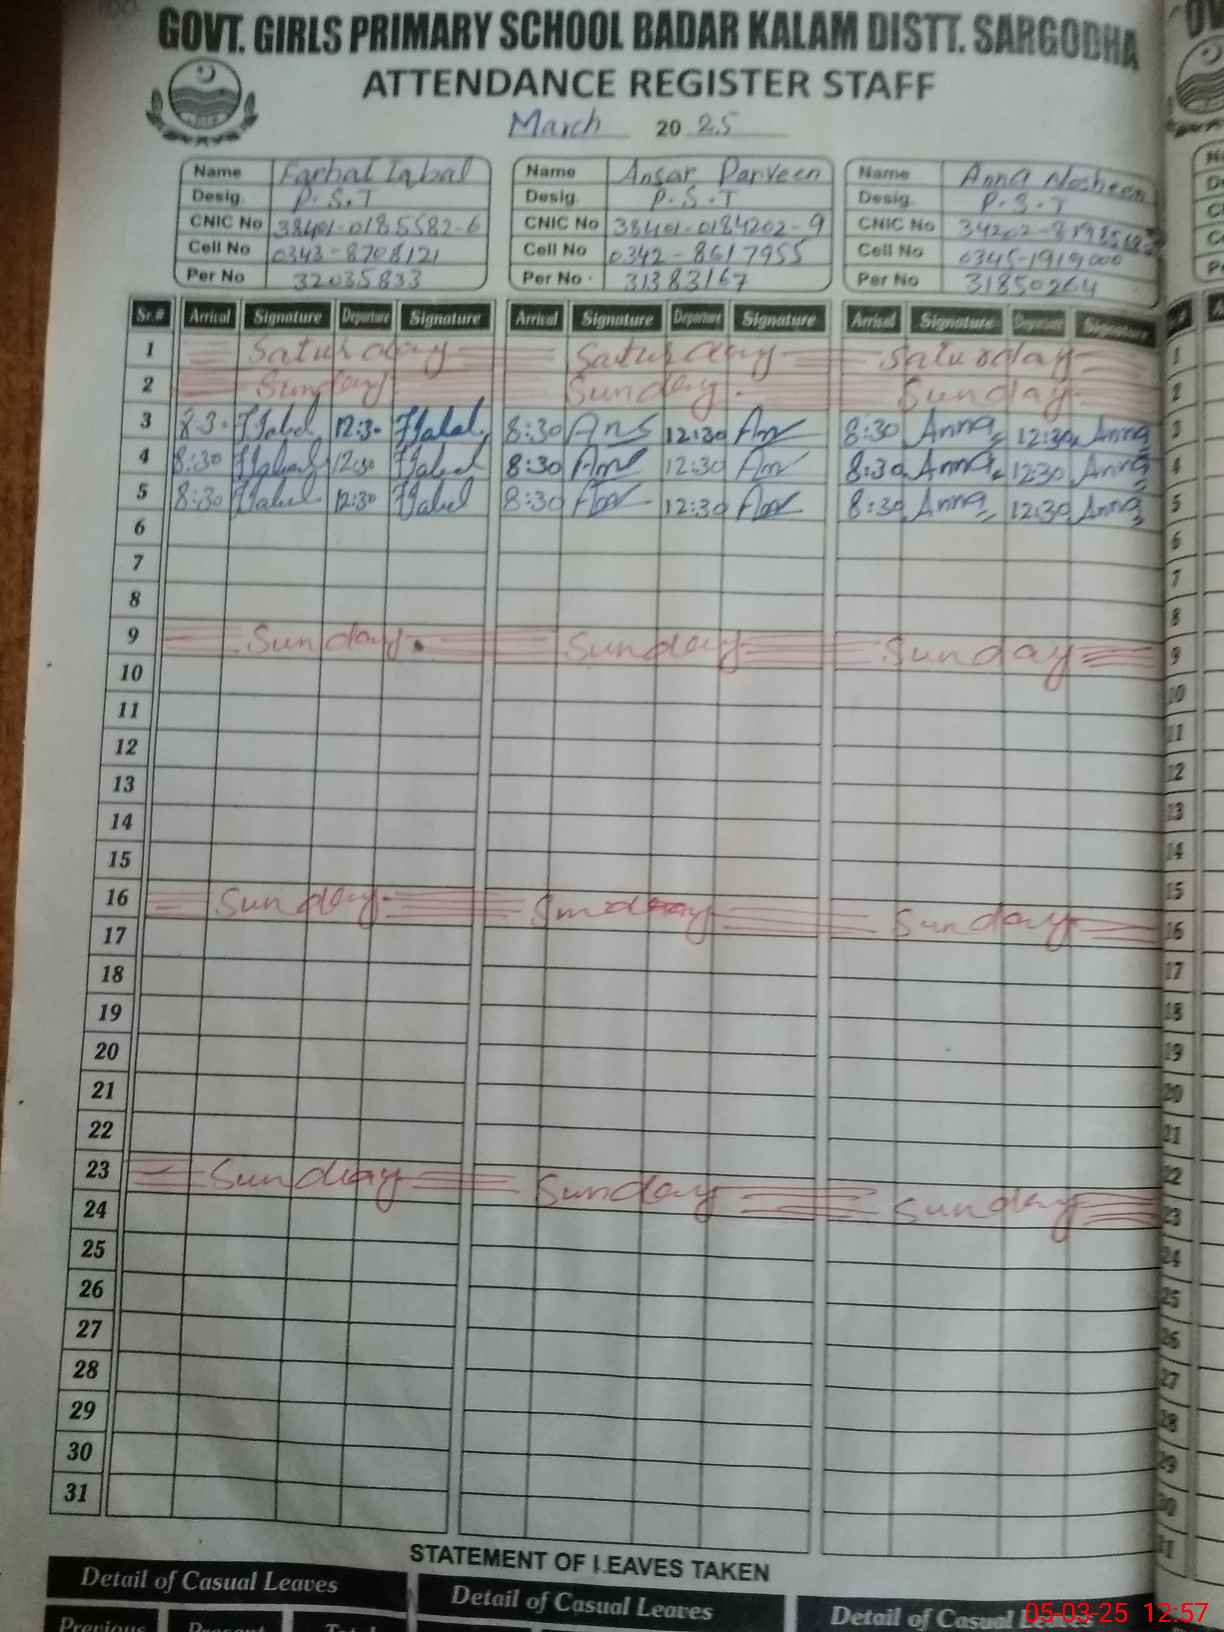 GOVT. GIRLS PRIMARY SCHOOL BADAR KALAM DISTT. SARGODHA
ATTENDANCE REGISTER STAFF
March 20 25
Name Farhat Iqbal Name Ansar Parveen Name Anna Nosheen
Desig. P.S.T Desig. P.S.T Desig. P.S.T
CNIC No 38401-0185582-6 CNIC No 38401-0184202-9 CNIC No
Cell No 0343-8708121 Cell No 0342-8617955 Cell No 0345-1919000
Per No 32035833 Per No 31383167 Per No 31850264
Sr.# Arrical Signature Departure Signature Arrical Signature Departure Signature Arrical Signature Departure Signature
1 Saturday Saturday Saturday 1
2 Sunday Sunday Sunday 2
3 8:30 12:30 8:30 Ans 12:30 8:30 Anna 12:30 Anna 3
4 8:30 12:30 8:30 12:30 8:30 Anna 12:30 Anna 4
5 8:30 12:30 8:30 12:30 8:30 Anna 12:30 Anna 5
6 6
7 7
8 8
9 Sunday Sunday Sunday 9
10 10
11 11
12 12
13 13
14 14
15 15
16 Sunday Sunday Sunday 16
17 17
18 18
19 19
20 20
21 21
22 22
23 Sunday Sunday Sunday 23
24 24
25 25
26 26
27 27
28 28
29 29
30 30
31 31
STATEMENT OF LEAVES TAKEN
Detail of Casual Leaves Detail of Casual Leaves Detail of Casual Leaves
Previous Present Total
05-03-25 12:57